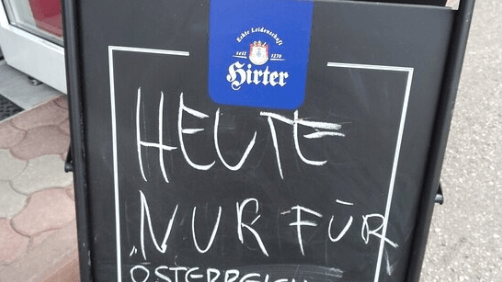 Echte Leidenschaft
seit 1270
Hirter
HEUTE
NUR FÜR
ÖSTERREICH